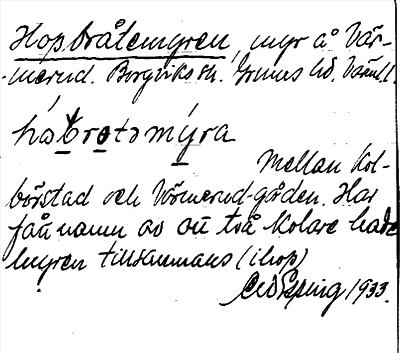 Hopbråtemyren, myr å Vär-
merud. Borgviks sn. Grums hd. Värml.
hobrotəmýra
Mellan Kol-
börstad och Värmerud-gården. Har
fått namn av att två kolare hade
myren tillsammans (ihop)
1933.